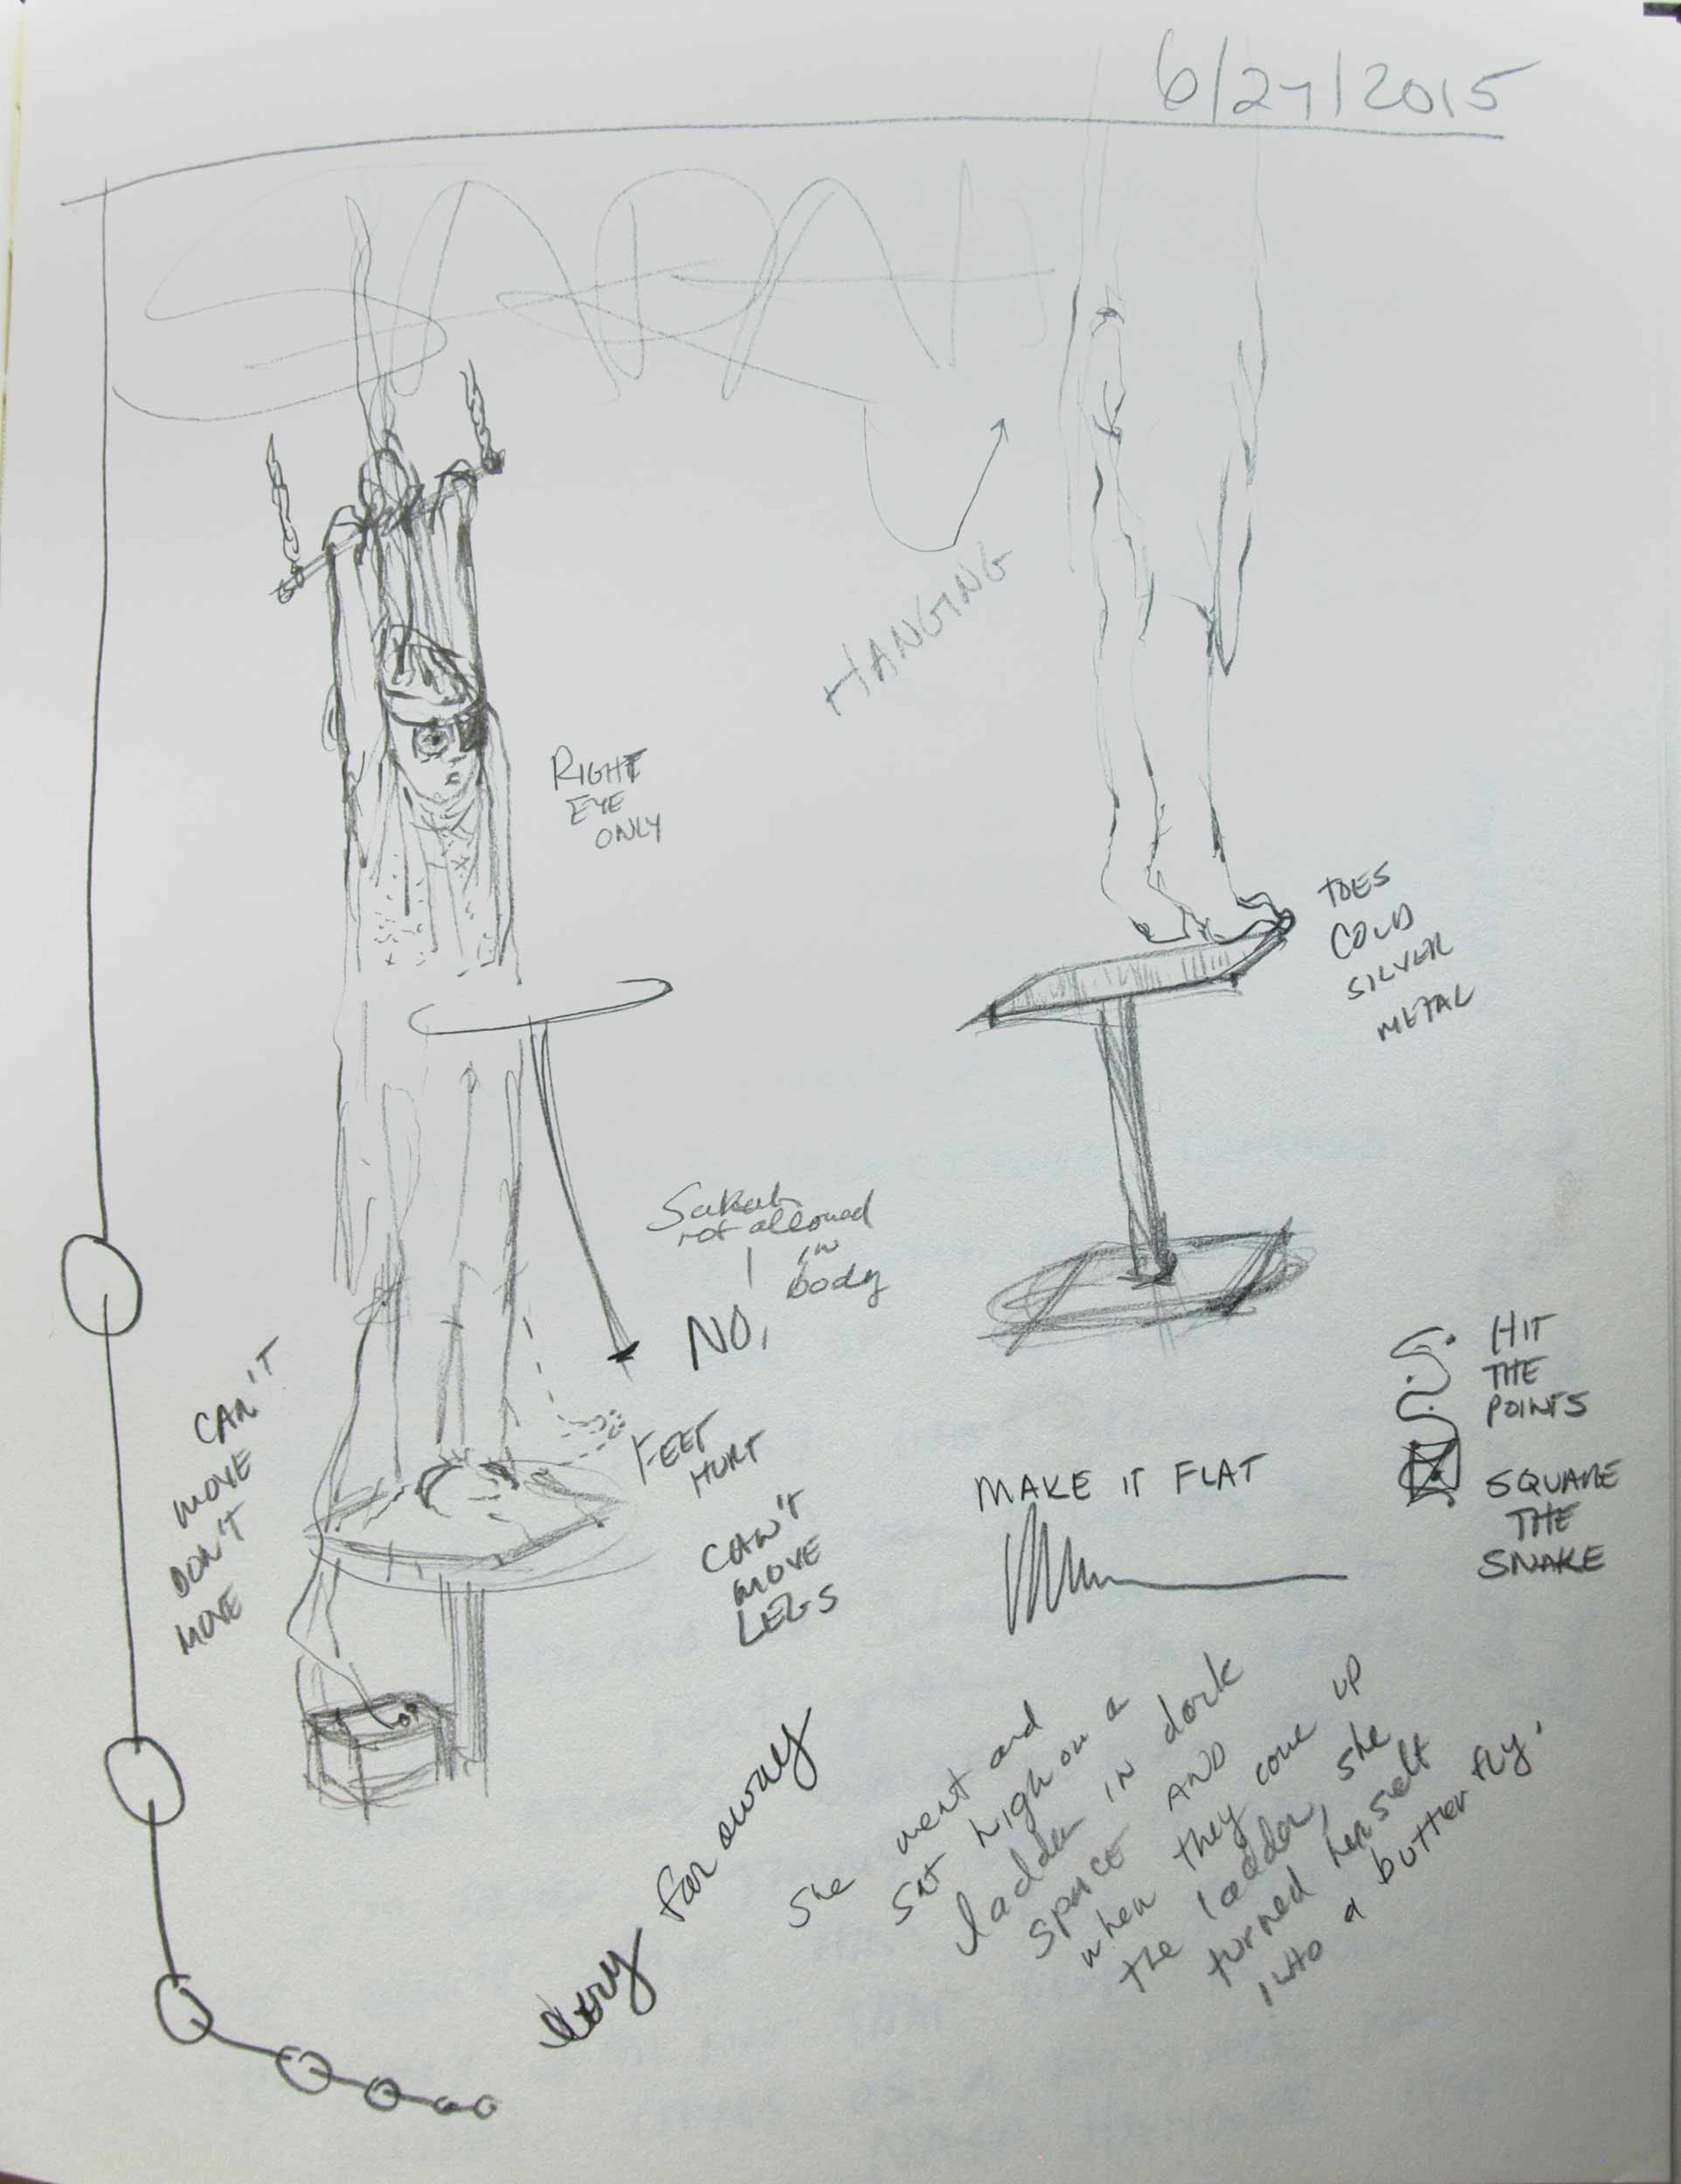 6/27/2015
SARAH
HANGING
RIGHT
EYE
ONLY
TOES
COLD
SILVER
METAL
Sarah
not allowed
in
body
NO,
CAN'T
MOVE
DON'T
MOVE
FEET
HURT
CAN'T
MOVE
LEGS
HIT
THE
POINTS
SQUARE
THE
SNAKE
MAKE IT FLAT
Very far away
She went and
sat high on a
ladder in dark
space AND
when they come up
the ladder, she
turned herself
into a butterfly.